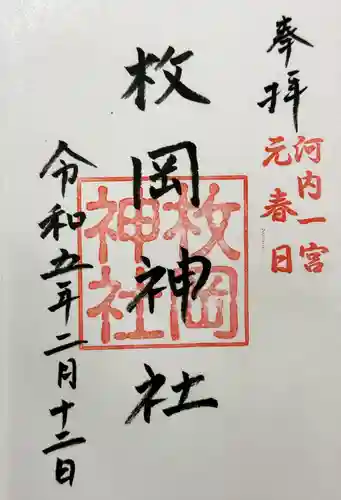 奉拝
河内一宮
元春日
枚岡神社
枚岡
神社
令和五年二月十二日